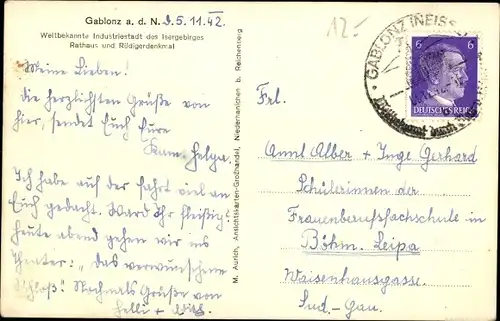 Gablonz a. d. N. D. 5. 11. 42.
Weltbekannte Industriestadt des Isergebirges
Rathaus und Rüdigerdenkmal
Meine Lieben!
Die herzlichsten Grüße von
hier, sendet Euch Eure
Kam. Helga.
Ich habe auf der Fahrt viel an
Euch gedacht. Ward Ihr fleißig?
Heute abend gehen wir ins
Theater: „Das verwunschene
Schloß". Nochmals Grüße von
Helli +
M. Aurich, Ansichtskarten-Großhandel, Niederhanichen b. Reichenberg
12.-
GABLONZ (NEISSE
6 6
DEUTSCHES REICH
Frl.
Annl Alber + Inge Gerhard
Schülerinnen der
Frauenberufsfachschule in
Böhm. Leipa
Waisenhausgasse.
Sud.-Gau.